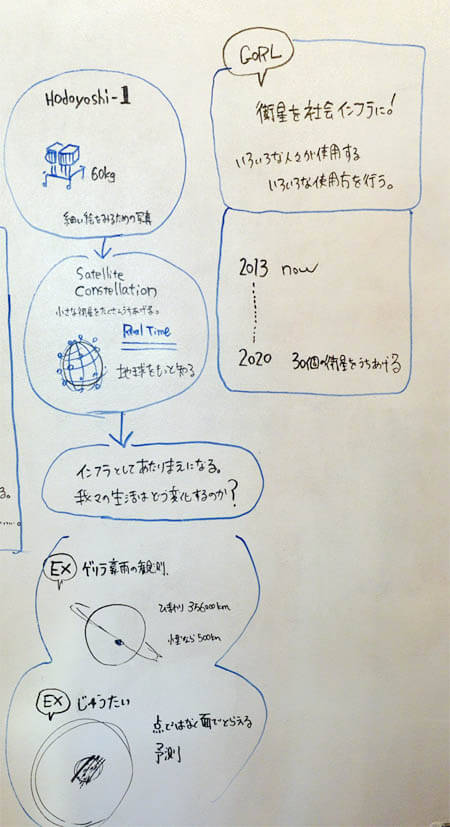 Hodoyoshi-1
60kg
細い絵をみるための写真
Satellite
Constellation
小さな衛星をたくさんうちあげる。
Real Time
地球をもっと知る
インフラとしてあたりまえになる。
我々の生活はどう変化するのか?
EX ゲリラ豪雨の観測.
ひまわり 356000km
500km
EX じゅうたい
点ではなく面でとらえる
予測
GORL
衛星を社会インフラに!
いろいろな人々が使用する
いろいろな使用方を行う。
2013 now
2020 30個の衛星をうちあげる
る。